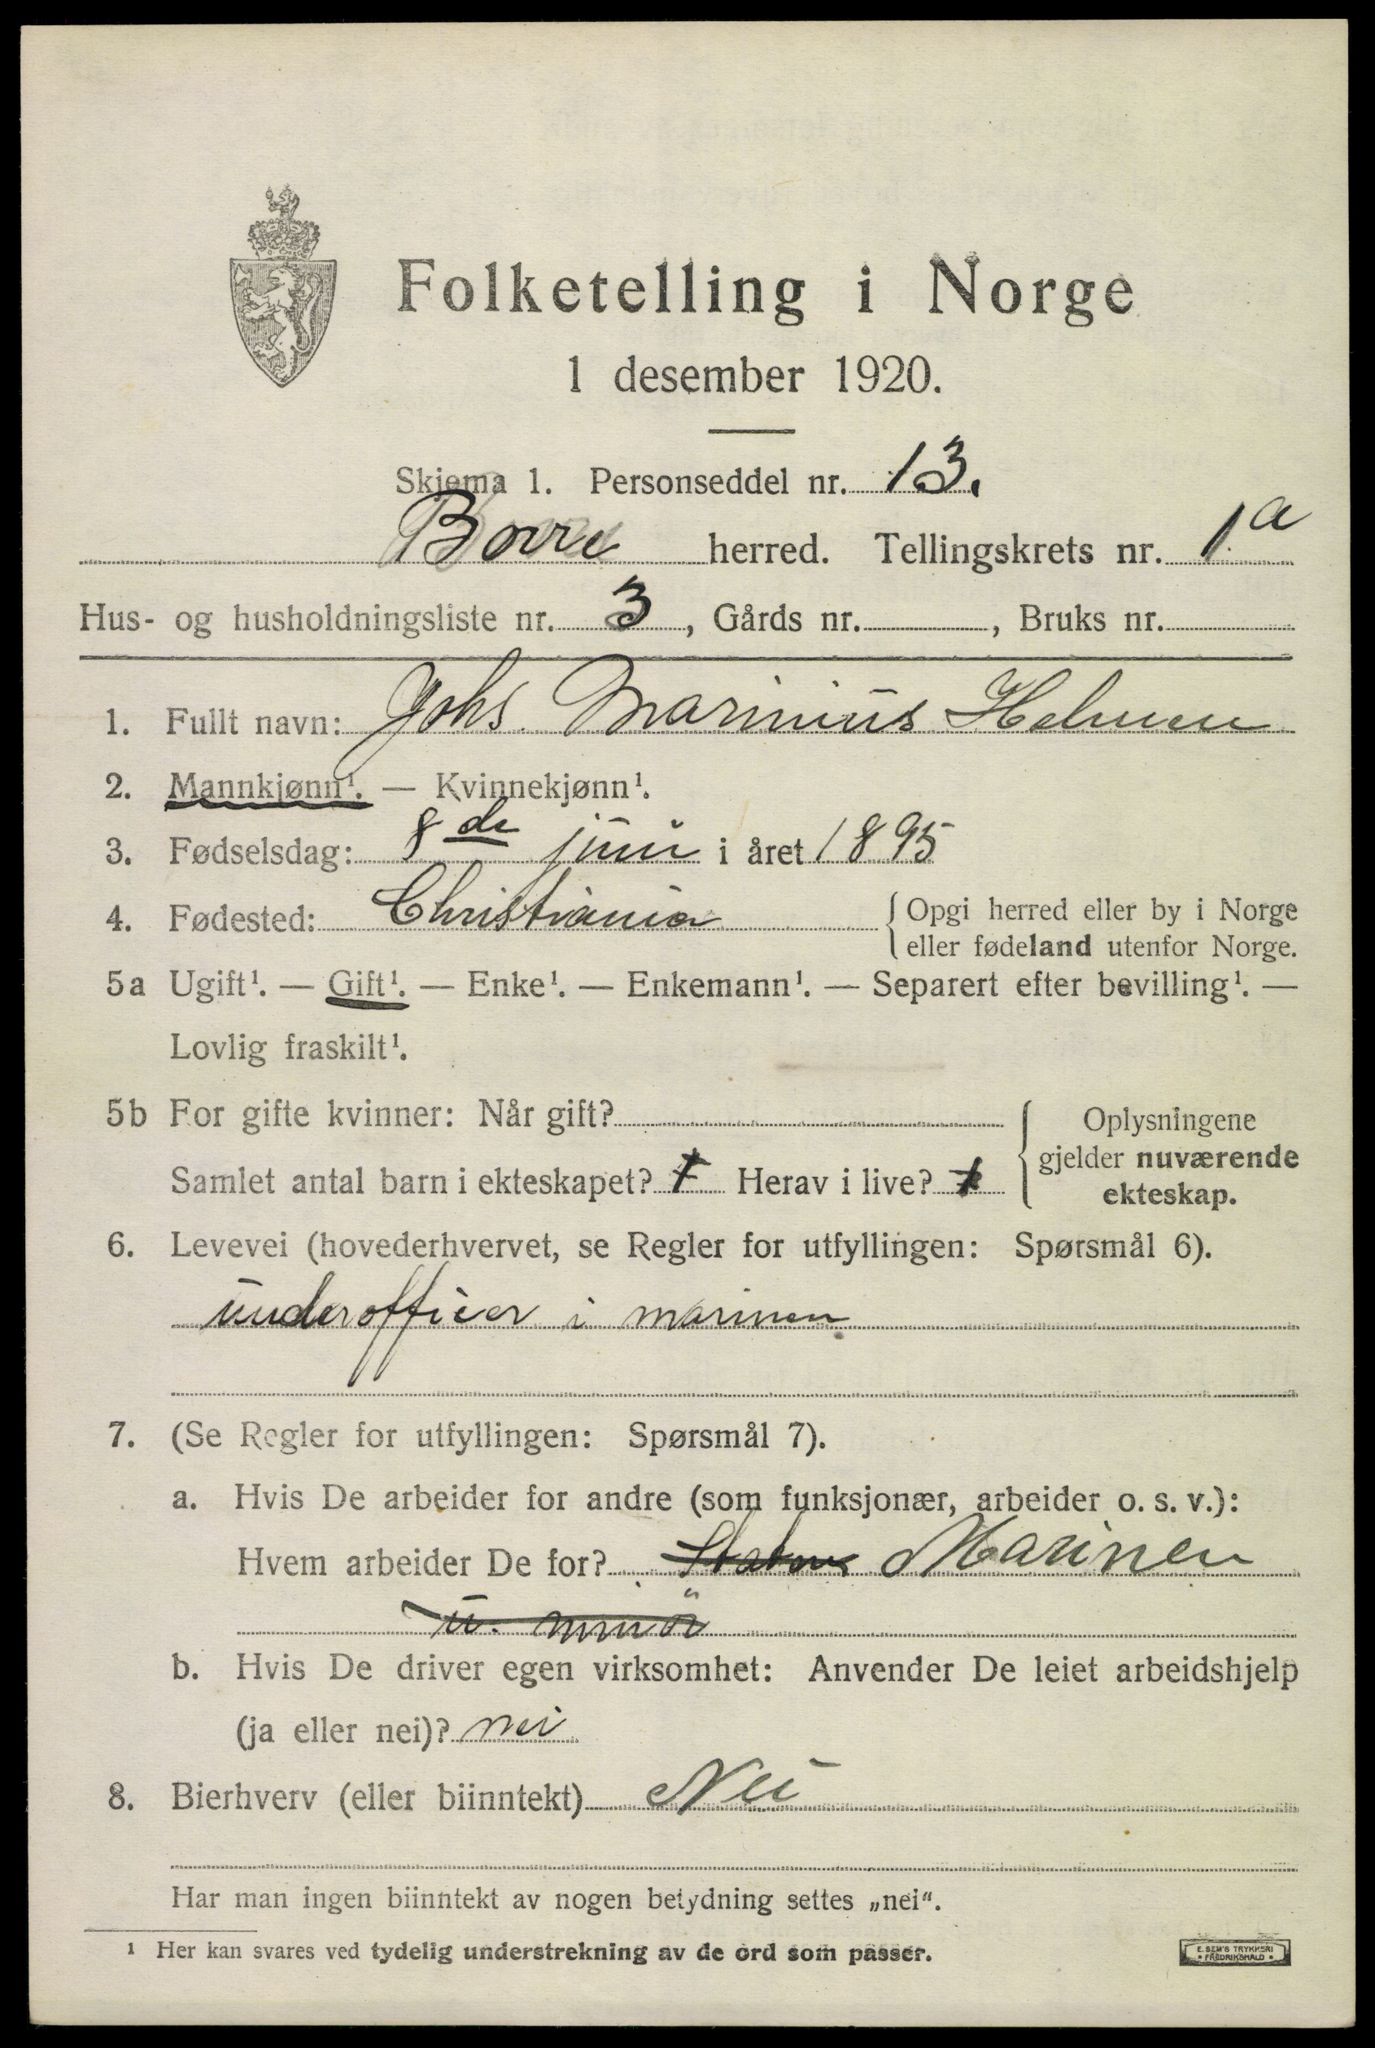 Folketelling i Norge
1 desember 1920.
Skjema 1. Personseddel nr. 13.
Borre herred. Tellingskrets nr. 1a
Hus- og husholdningsliste nr. 3, Gårds nr. , Bruks nr.
1. Fullt navn: Johs. Marinius Helmen
2. Mannkjønn¹. — Kvinnekjønn¹.
3. Fødselsdag: 8de juni i året 1895
4. Fødested: Christiania { Opgi herred eller by i Norge
eller fødeland utenfor Norge.
5a Ugift¹. — Gift¹. — Enke¹. — Enkemann¹. — Separert efter bevilling¹. —
Lovlig fraskilt¹.
5b For gifte kvinner: Når gift?
Samlet antal barn i ekteskapet? 1 Herav i live? 1
Oplysningene
gjelder nuværende
ekteskap.
6. Levevei (hovederhvervet, se Regler for utfyllingen: Spørsmål 6).
underofficer i marinen
7. (Se Regler for utfyllingen: Spørsmål 7).
a. Hvis De arbeider for andre (som funksjonær, arbeider o. s. v.):
Hvem arbeider De for? Staten Marinen
u.
b. Hvis De driver egen virksomhet: Anvender De leiet arbeidshjelp
(ja eller nei)? nei
8. Bierhverv (eller biinntekt) Nei
Har man ingen biinntekt av nogen betydning settes „nei".
¹ Her kan svares ved tydelig understrekning av de ord som passer.
E. SEM'S TRYKKERI
FREDRIKSHALD